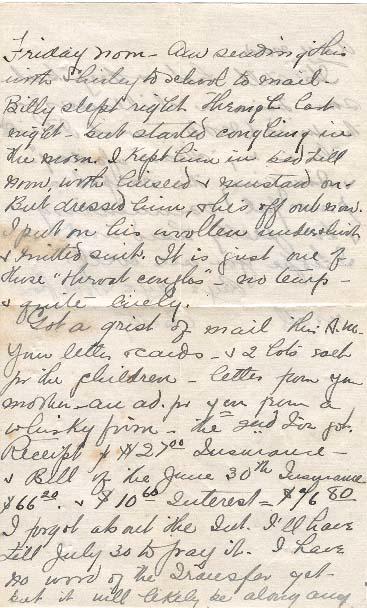 Friday noon - Am sending this
with Shirley to school to mail -
Billy slept right through last
night - but started coughing in
the morn. I kept him in bed till
noon, with linseed & mustard on.
But dressed him, & he's off out now.
I put on his woollen undershirt
& knitted suit. It is just one of
those "throat coughs" - no temp -
& quite lively.
Got a grist of mail this A.M.
Your letter & cards - & 2 lots each
for the children - letter from your
mother - an ad. for you from a
whisky firm - the 2nd I've got.
Receipt of $27.00 Insurance -
& Bill of the June 30th Insurance
$66.20 & $10.60 Interest = $76.80
I forgot about the Int. I'll have
till July 30 to pay it. I have
no word of the Transfer yet -
but it will likely be along any